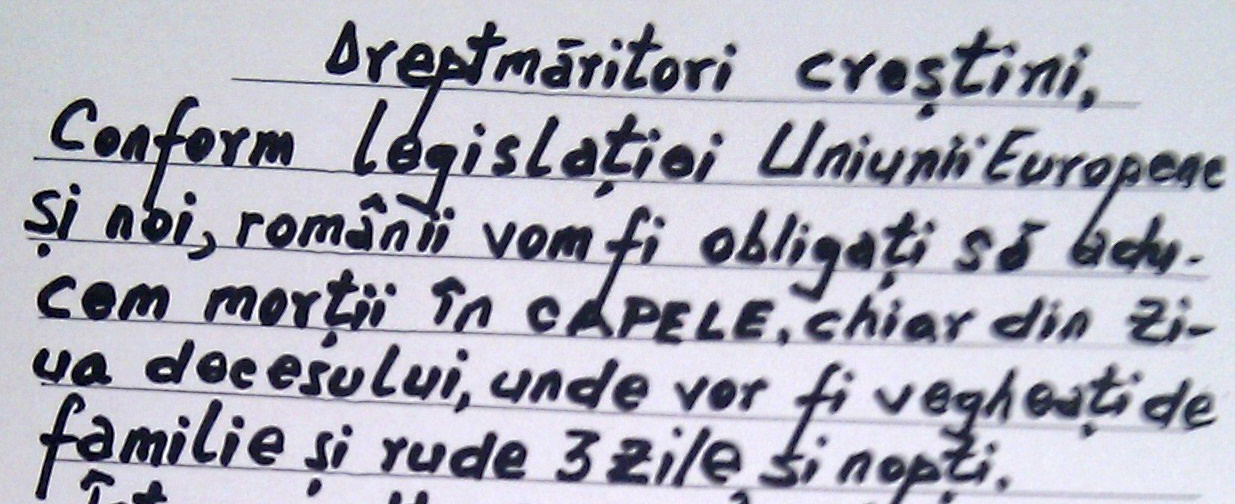 Dreptmăritori creștini,
Conform legislației Uniunii Europene
și noi, românii vom fi obligați să adu-
cem morții în CAPELE, chiar din zi-
ua decesului, unde vor fi vegheați de
familie și rude 3 zile și nopți.